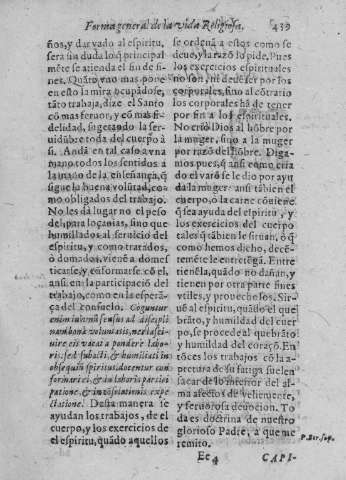 Forma general de la vida Religiosa. 439
ños, y dar vado al espiritu,
sera sin duda lo q̃ principal
mẽte se atienda el fin de fi-
nes. Quãto vno mas pone
en esto la mira ocupãdose,
tãto trabaja, dize el Santo
cõ mas feruor, y cõ mas fi-
delidad, sugetando la ser-
uidũbre toda del cuerpo à
si. Andã en tal caso a vna
mano todos los sentidos a
la mano de la enseñança, q̃
sigue la buena volũtad, co-
mo obligados del trabajo.
No les da lugar no el peso
del, para loçanias, sino que
humillados al seruicio del
espiritu, y como tratados,
ò domados, vienẽ a domes-
ticarse, y enformarse cõ el,
ansi en la participacion del
trabajo, como en la esperã-
ça del consuelo. Coguntur
enim in vnum sensus ad discipli
nam bonæ voluntatis, nec lasci-
uire eis vacat a pondere labo-
ris, sed subacti, & humiliati in
obsequiũ spiritus, docentur con
formari ei, & in laboris partici
patione, & in cõsolationis expe-
ctatione. Desta manera se
ayudan los trabajos, de el
cuerpo, y los exercicios de
el espiritu, quãdo aquellos
se ordenã a estos como se
deue, y la razõ lo pide. Pues
los exercicios espirituales
no son, ni deuẽ ser por los
corporales, sino al cõtrario
los corporales hã de tener
por fin a los espirituales.
No criò Dios al hõbre por
la muger, sino a la muger
por razõ del hõbre. Diga-
mos pues, q̃ ansi como cria
do el varõ se le dio por ayu
da la muger: ansi tãbien el
cuerpo, o la carne cõuiene
q̃ sea ayuda del espiritu, y
los exercicios del cuerpo
tales q̃ tãbien le siruan, ò q̃
como hemos dicho, decẽ-
temẽte le entretẽga. Entre
tienẽla, quãdo no dañan, y
tienen por otra parte fines
vtiles, y prouechosos. Sir-
uẽ al espiritu, quãdo el que
brãto, y humildad del cuer
po, se procede al quebrãto
y humildad del coraçõ. En
tõces los trabajos cõ la a-
pretura de su fatiga suelen
sacar de lo interior del al-
ma afectos de vehemente,
y feruorosa deuocion. To
da es doctrina de nuestro
glorioso Padre, a que me
remito.
P. Ber. sup.
Ee 4 CAPI-